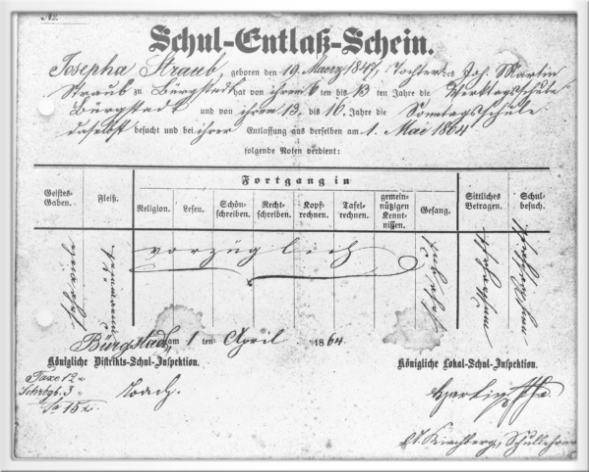 No.
Schul-Entlaß-Schein.
Josepha Straub geboren den 19. Maerz 1847, Tochter des Joh. Martin
Straub zu Bürgstadt hat von ihrem 6 bis 13 ten Jahre die Werktagsschule
Bürgstadt und von ihrem 13. bis 16. Jahre die Sonntagsschule
daselbst besucht und bei ihrer Entlassung aus derselben am 1. Mai 1864
folgende Noten verdient:
Geistes-Gaben. Fleiß. Fortgang in Sittliches Betragen. Schul-besuch.
Religion. Lesen. Schön-schreiben. Recht-schreiben. Kopf-rechnen. Tafel-rechnen. gemein-nützigen Kennt-nissen. Gesang.
sehr viele vorzüglich
Bürgstadt, am 1 ten April 1864.
Königliche Distrikts-Schul-Inspektion. Königliche Lokal-Schul-Inspektion.
Taxe 12
Schrbg. 3
15
Kirchberg, Schullehrer